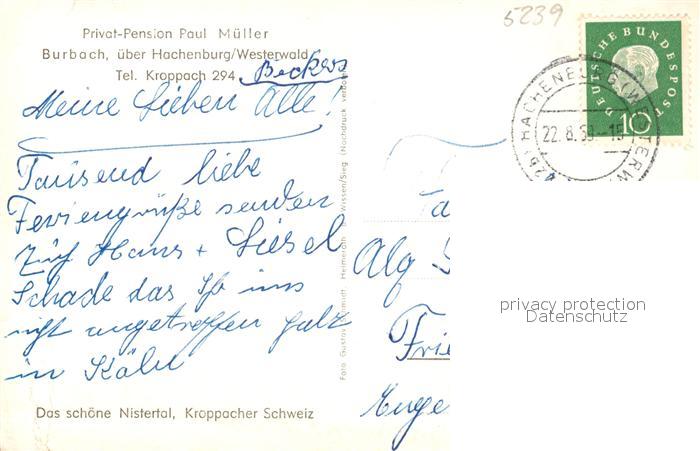 5239
Privat-Pension Paul Müller
Burbach, über Hachenburg/Westerwald
Tel. Kroppach 294 Beckers
Meine Lieben Alle!
Tausend liebe
Feriengrüße senden
Hans + Liesel
Schade das Ihr uns
nicht angetroffen habt
in Köln
Das schöne Nistertal, Kroppacher Schweiz
Foto Gustav Wissen/Sieg (Nachdruck verboten)
DEUTSCHE BUNDESPOST
10
HACHENBURG (WESTERW
22.8.59.-15
Fa
Alg
Frie
Enge
privacy protection
Datenschutz